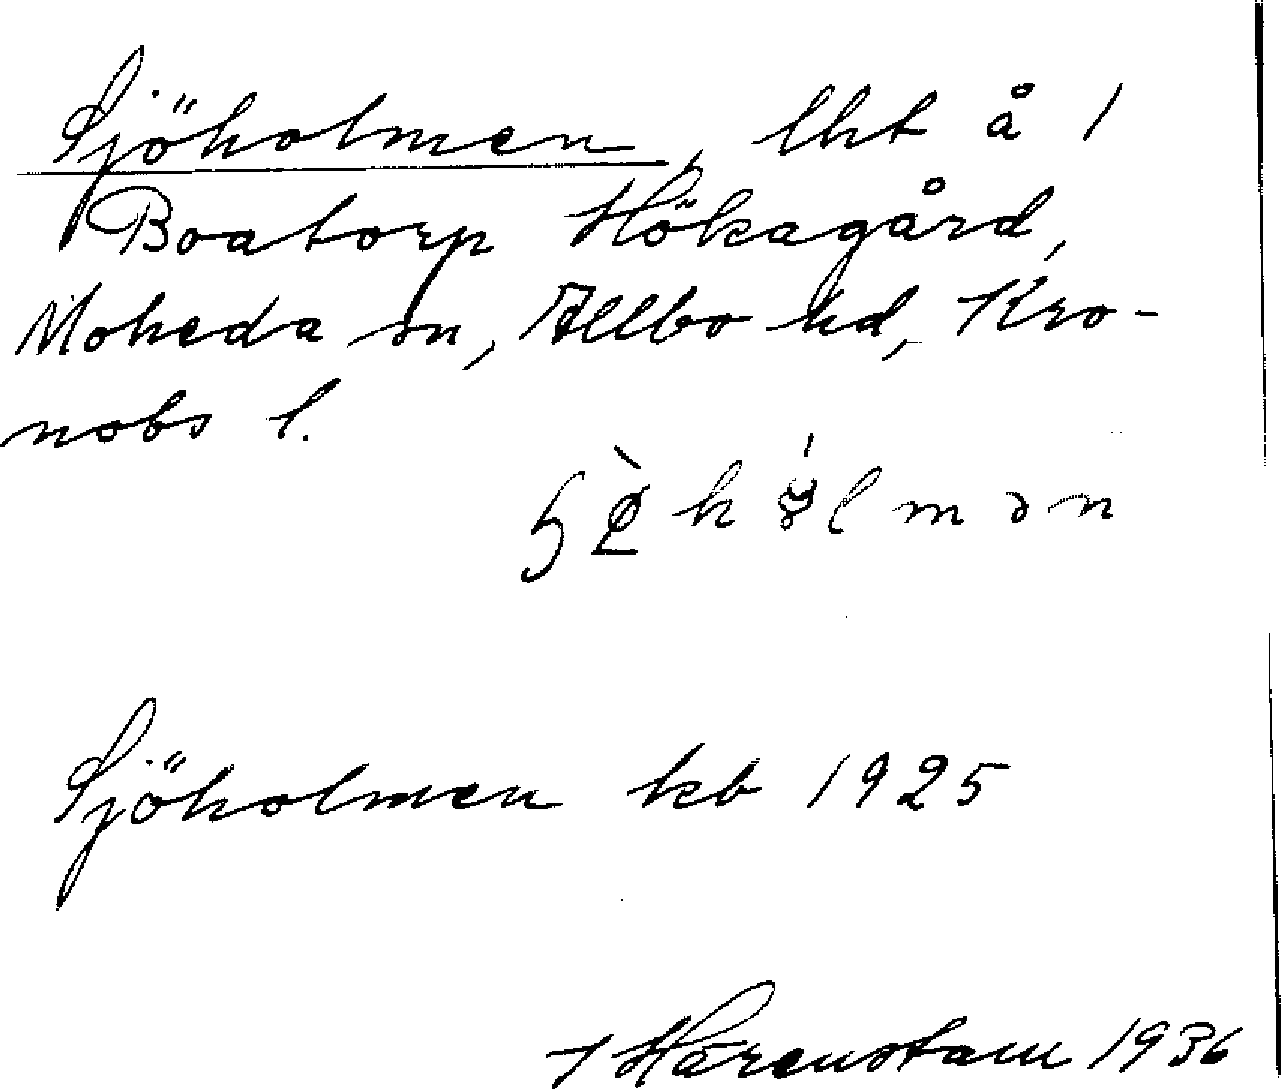 Sjöholmen, lht å 1
Boatorp Hökagård,
Moheda sn, Allbo hd, Kro-
nobs l.
Sjöholmen kb 1925
Härenstam 1936